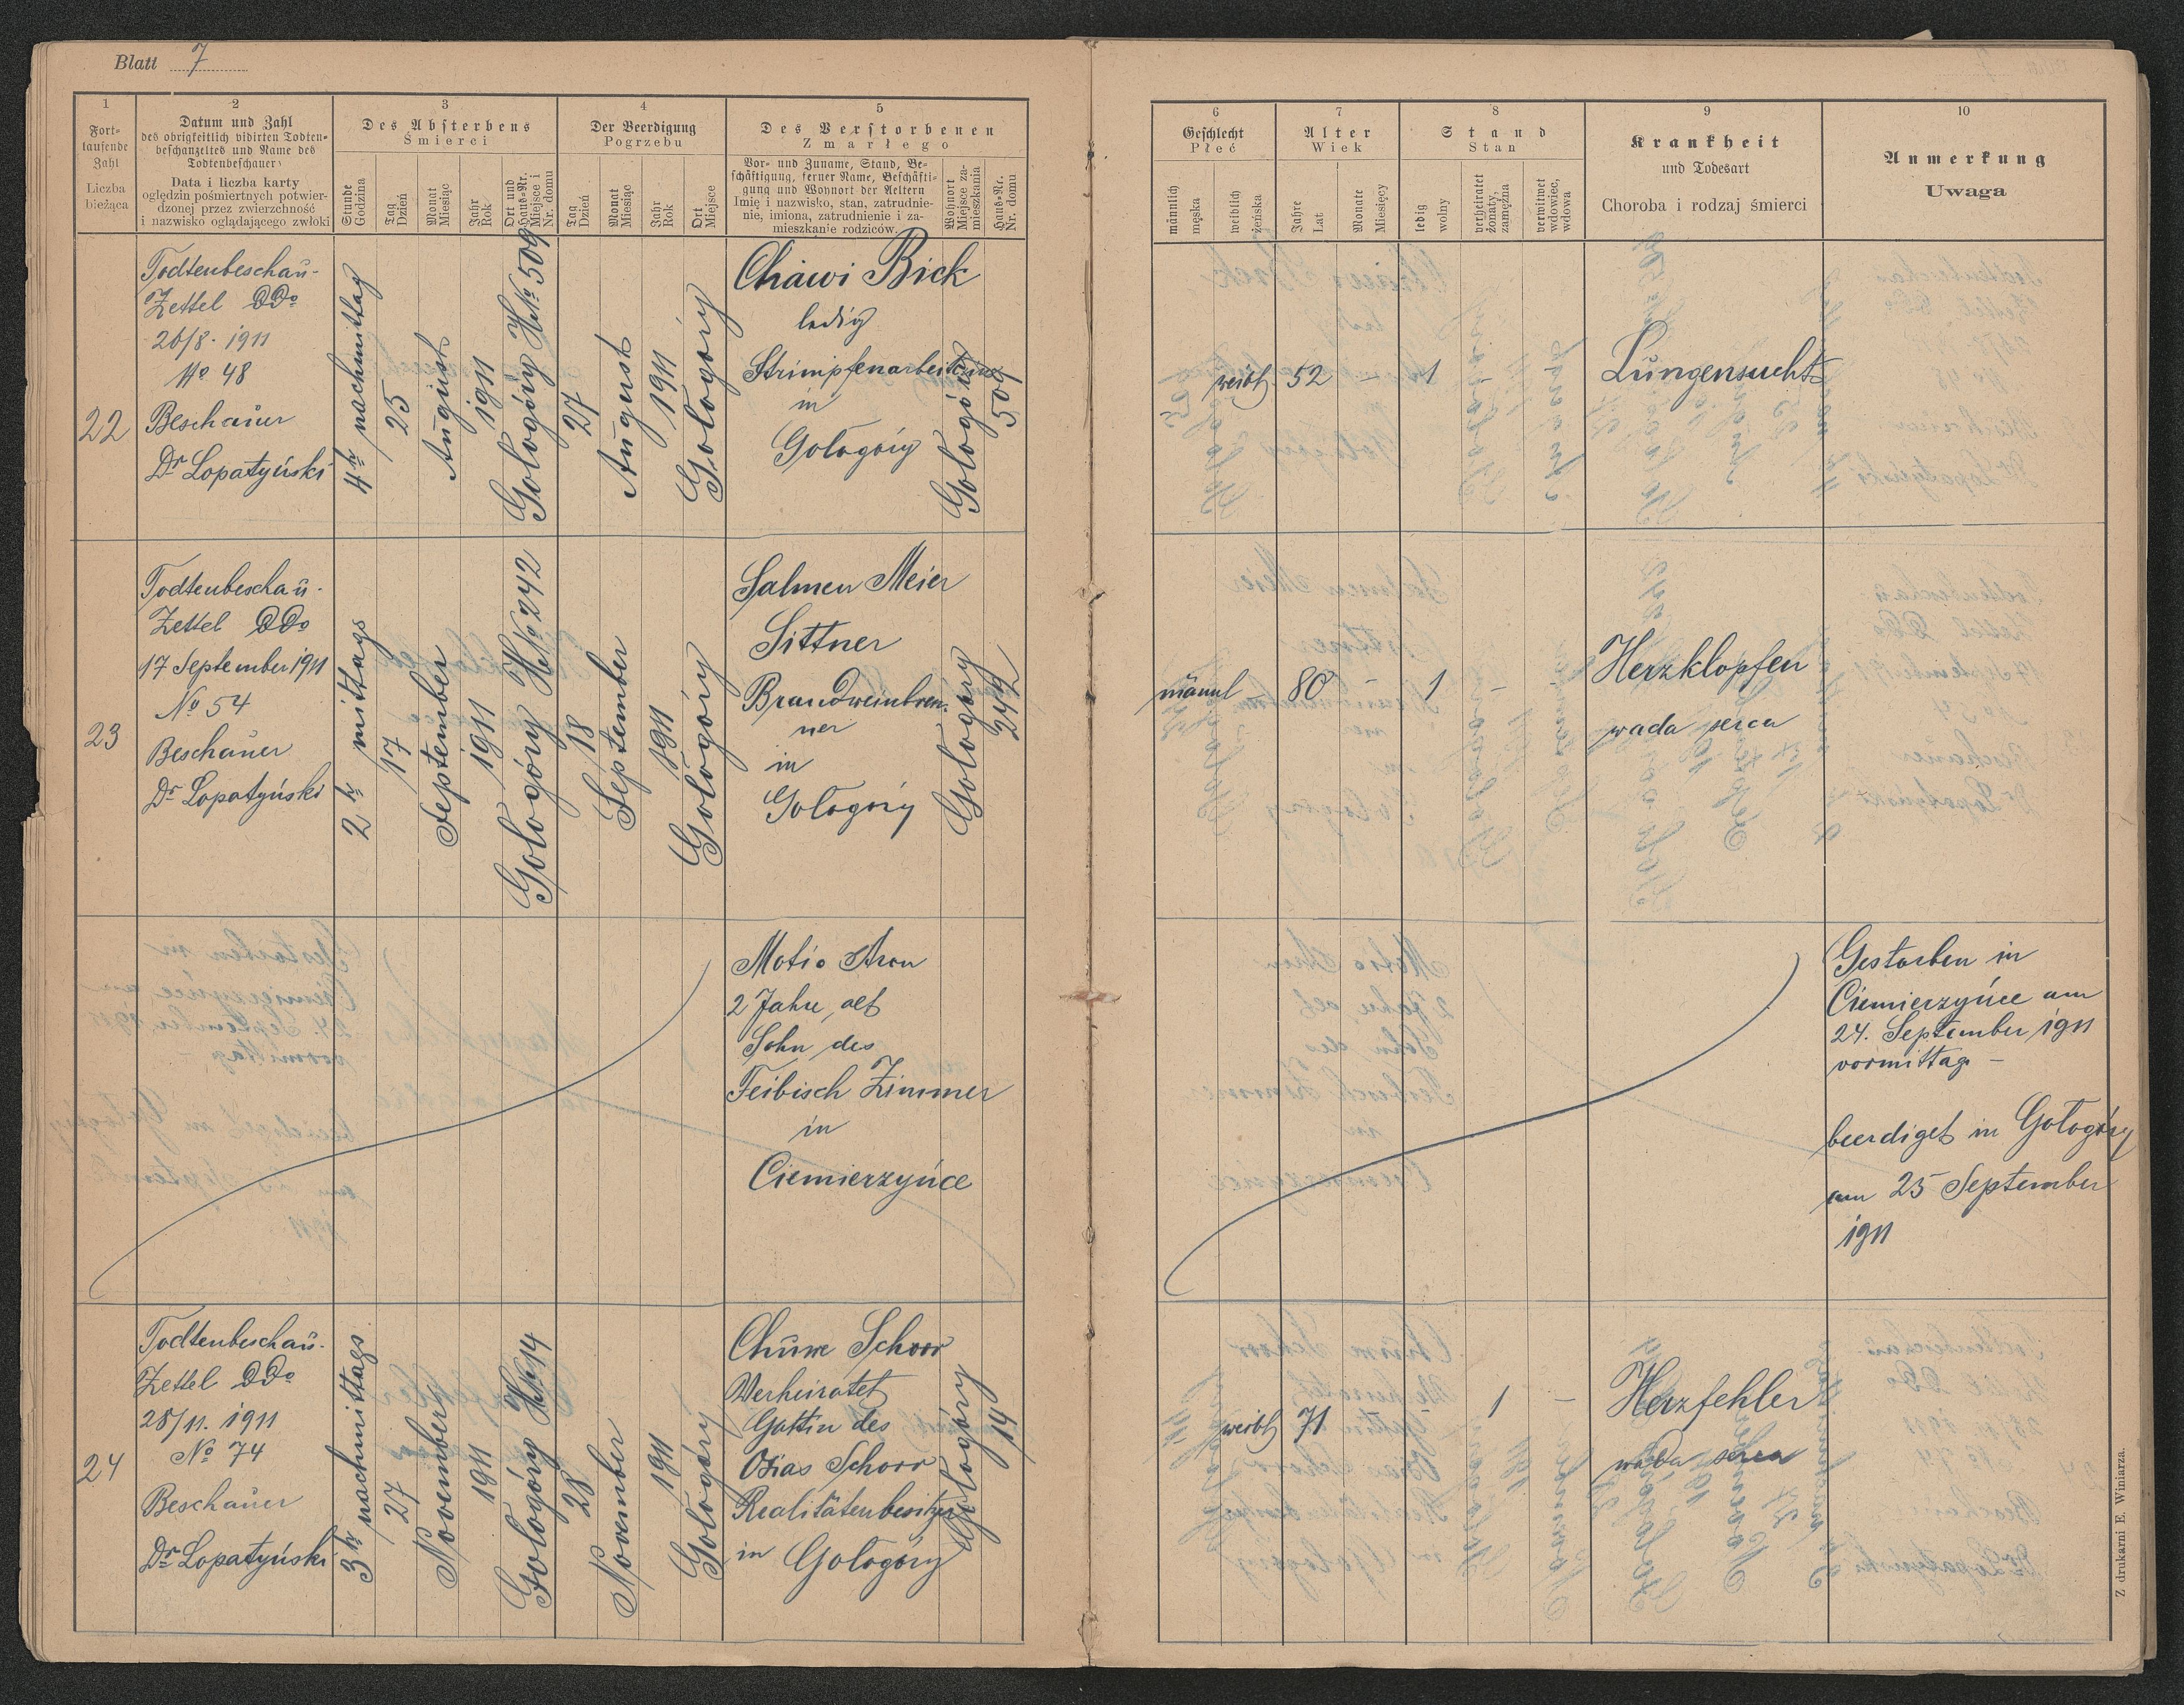 Blatt 7
1
Fort-
laufende
Zahl
Liczba
bieżąca
2
Datum und Zahl
des obrigkeitlich vidirten Todten-
beschauzettels und Name des
Todtenbeschauers
Data i liczba karty
oględzin pośmiertnych potwier-
dzonej przez zwierzchność
i nazwisko oglądającego zwłoki
3
Des Absterbens
Śmierci
Stunde
Godzina
Tag
Dzień
Monat
Miesiąc
Jahr
Rok
Ort und
Haus-Nr.
Miejsce i
Nr. domu
4
Der Beerdigung
Pogrzebu
Tag
Dzień
Monat
Miesiąc
Jahr
Rok
Ort
Miejsce
5
Des Verstorbenen
Zmarłego
Vor- und Zuname, Stand, Be-
schäftigung, ferner Name, Beschäfti-
gung und Wohnort der Aeltern
Imię i nazwisko, stan, zatrudnie-
nie, imiona, zatrudnienie i za-
mieszkanie rodziców.
Wohnort
Miejsce za-
mieszkania
Haus-Nr.
Nr. domu
6
Geschlecht
Płeć
männlich
męska
weiblich
żeńska
7
Alter
Wiek
Jahre
Lat
Monate
Miesięcy
8
Stand
Stan
ledig
wolny
verheiratet
żonaty,
zamężna
verwitwet
wdowiec,
wdowa
9
Krankheit
und Todesart
Choroba i rodzaj śmierci
10
Anmerkung
Uwaga
22
Todtenbeschau-
Zettel DDo
26/8. 1911
No 48
Beschauer
Dr Lopatyński
4 h nachmittag
25
August
1911
Gołogóry HNo 509
27
August
1911
Gołogóry
Chawi Bick
ledig
Strimpfenarbeiterin
in
Gołogóry
Gołogóry
509
weibl
52
-
1
-
Lungensucht
23
Todtenbeschau-
Zettel DDo
17 September 1911
No 54
Beschauer
Dr Lopatyński
2 h mittags
17
September
1911
Gołogóry HNo 242
18
September
1911
Gołogóry
Salmen Meier
Sittner
Brandweinbren-
ner
in
Gołogóry
Gołogóry
242
männl
-
80
-
1
-
Herzklopfen
wada serca
Motio Aron
2 Jahre, alt
Sohn des
Feibisch Zimmer
in
Ciemierzyńce
Gestorben in
Ciemierzyńce am
24. September 1911
vormittag -
beerdiget in Gołogóry
am 25 September
1911
24
Todtenbeschau-
Zettel DDo
28/11. 1911
No 74
Beschauer
Dr Lopatyński
3 h nachmittags
27
November
1911
Gołogóry HNo 14
28
November
1911
Gołogóry
Chuwe Schorr
Verheiratet
Gattin des
Osias Schorr
Realitätenbesitzer
in Gołogóry
Gołogóry
14
weibl
71
1
-
Herzfehler
wada serca
Z drukarni E. Winiarza.